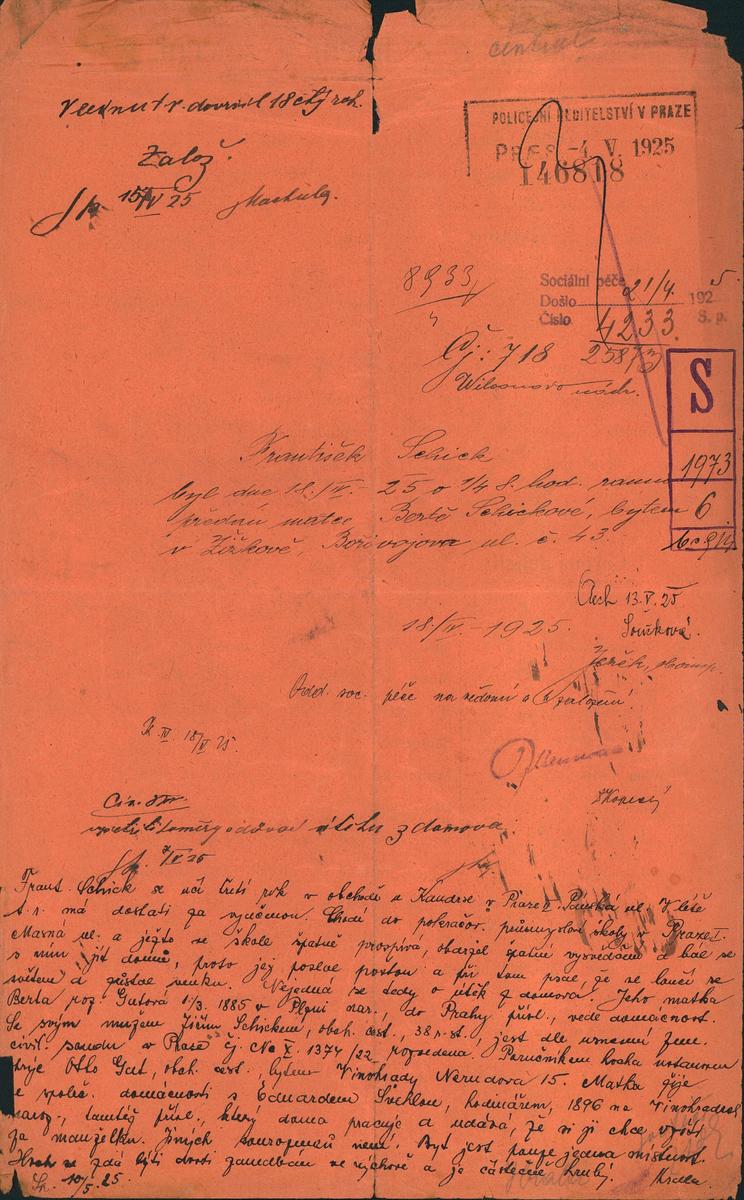 central
dovršil 18 ctý rok.
Založ.
15/IV 25
POLICEJNÍ ŘEDITELSTVÍ V PRAZE
PRAES -4. V. 1925
146818
8933
Sociální péče 21/4. 1925
Došlo
Číslo 4233 S. p.
Čj.: 718
Wilsonovo nádr.
S
1973
6
František Schick
byl dne 18./IV. - 25 o 1/4 8. hod. ranní
předán matce Bertě Schickové, bytem
v Žižkově, Bořivojova ul. č. 43.
13.V.25
18./IV. - 1925.
Odd. soc. péče na vědomí a založení.
18/IV 25.
z domova.
Frant. Schick se učí třetí rok v obchodě u Kandrse v Praze Panská ul. V létě
t.r. má dostati za vyučenou. Chodí do pokračov. průmyslové školy v Praze I.
Masná ul. a ježto ve škole špatně prospívá, obdržel špatné vysvědčení a bál se
s ním jít domů, proto jej poslal poštou a při tom psal, že se loučí se
světem a zůstal venku. Nejedná se tedy o útěk z domova. Jeho matka
Berta roz. Gutová 1./3. 1885 v Plzni nar., do Prahy přísl., vede domácnost.
Se svým mužem Jiřím Schickem, obch. cest., 38 r. st., jest dle usnesení zem.
civil. soudu v Praze čj. 1374/22 rozvedena. Poručníkem hocha ustanoven
strýc Otto Gut, obch. cest., bytem Vinohrady Nerudova 15. Matka žije
ve společ. domácnosti s Eduardem Švehlou, hodinářem, 1896 na Vinohradech
naroz., tamtéž přísl., který doma pracuje a udává, že si ji chce vzíti
za manželku. Jiných sourozenců není. Byt jest pouze jedna místnost.
Hoch se zdá býti dosti zanedbán ve výchově a je částečně hrubý.
10/5. 25.